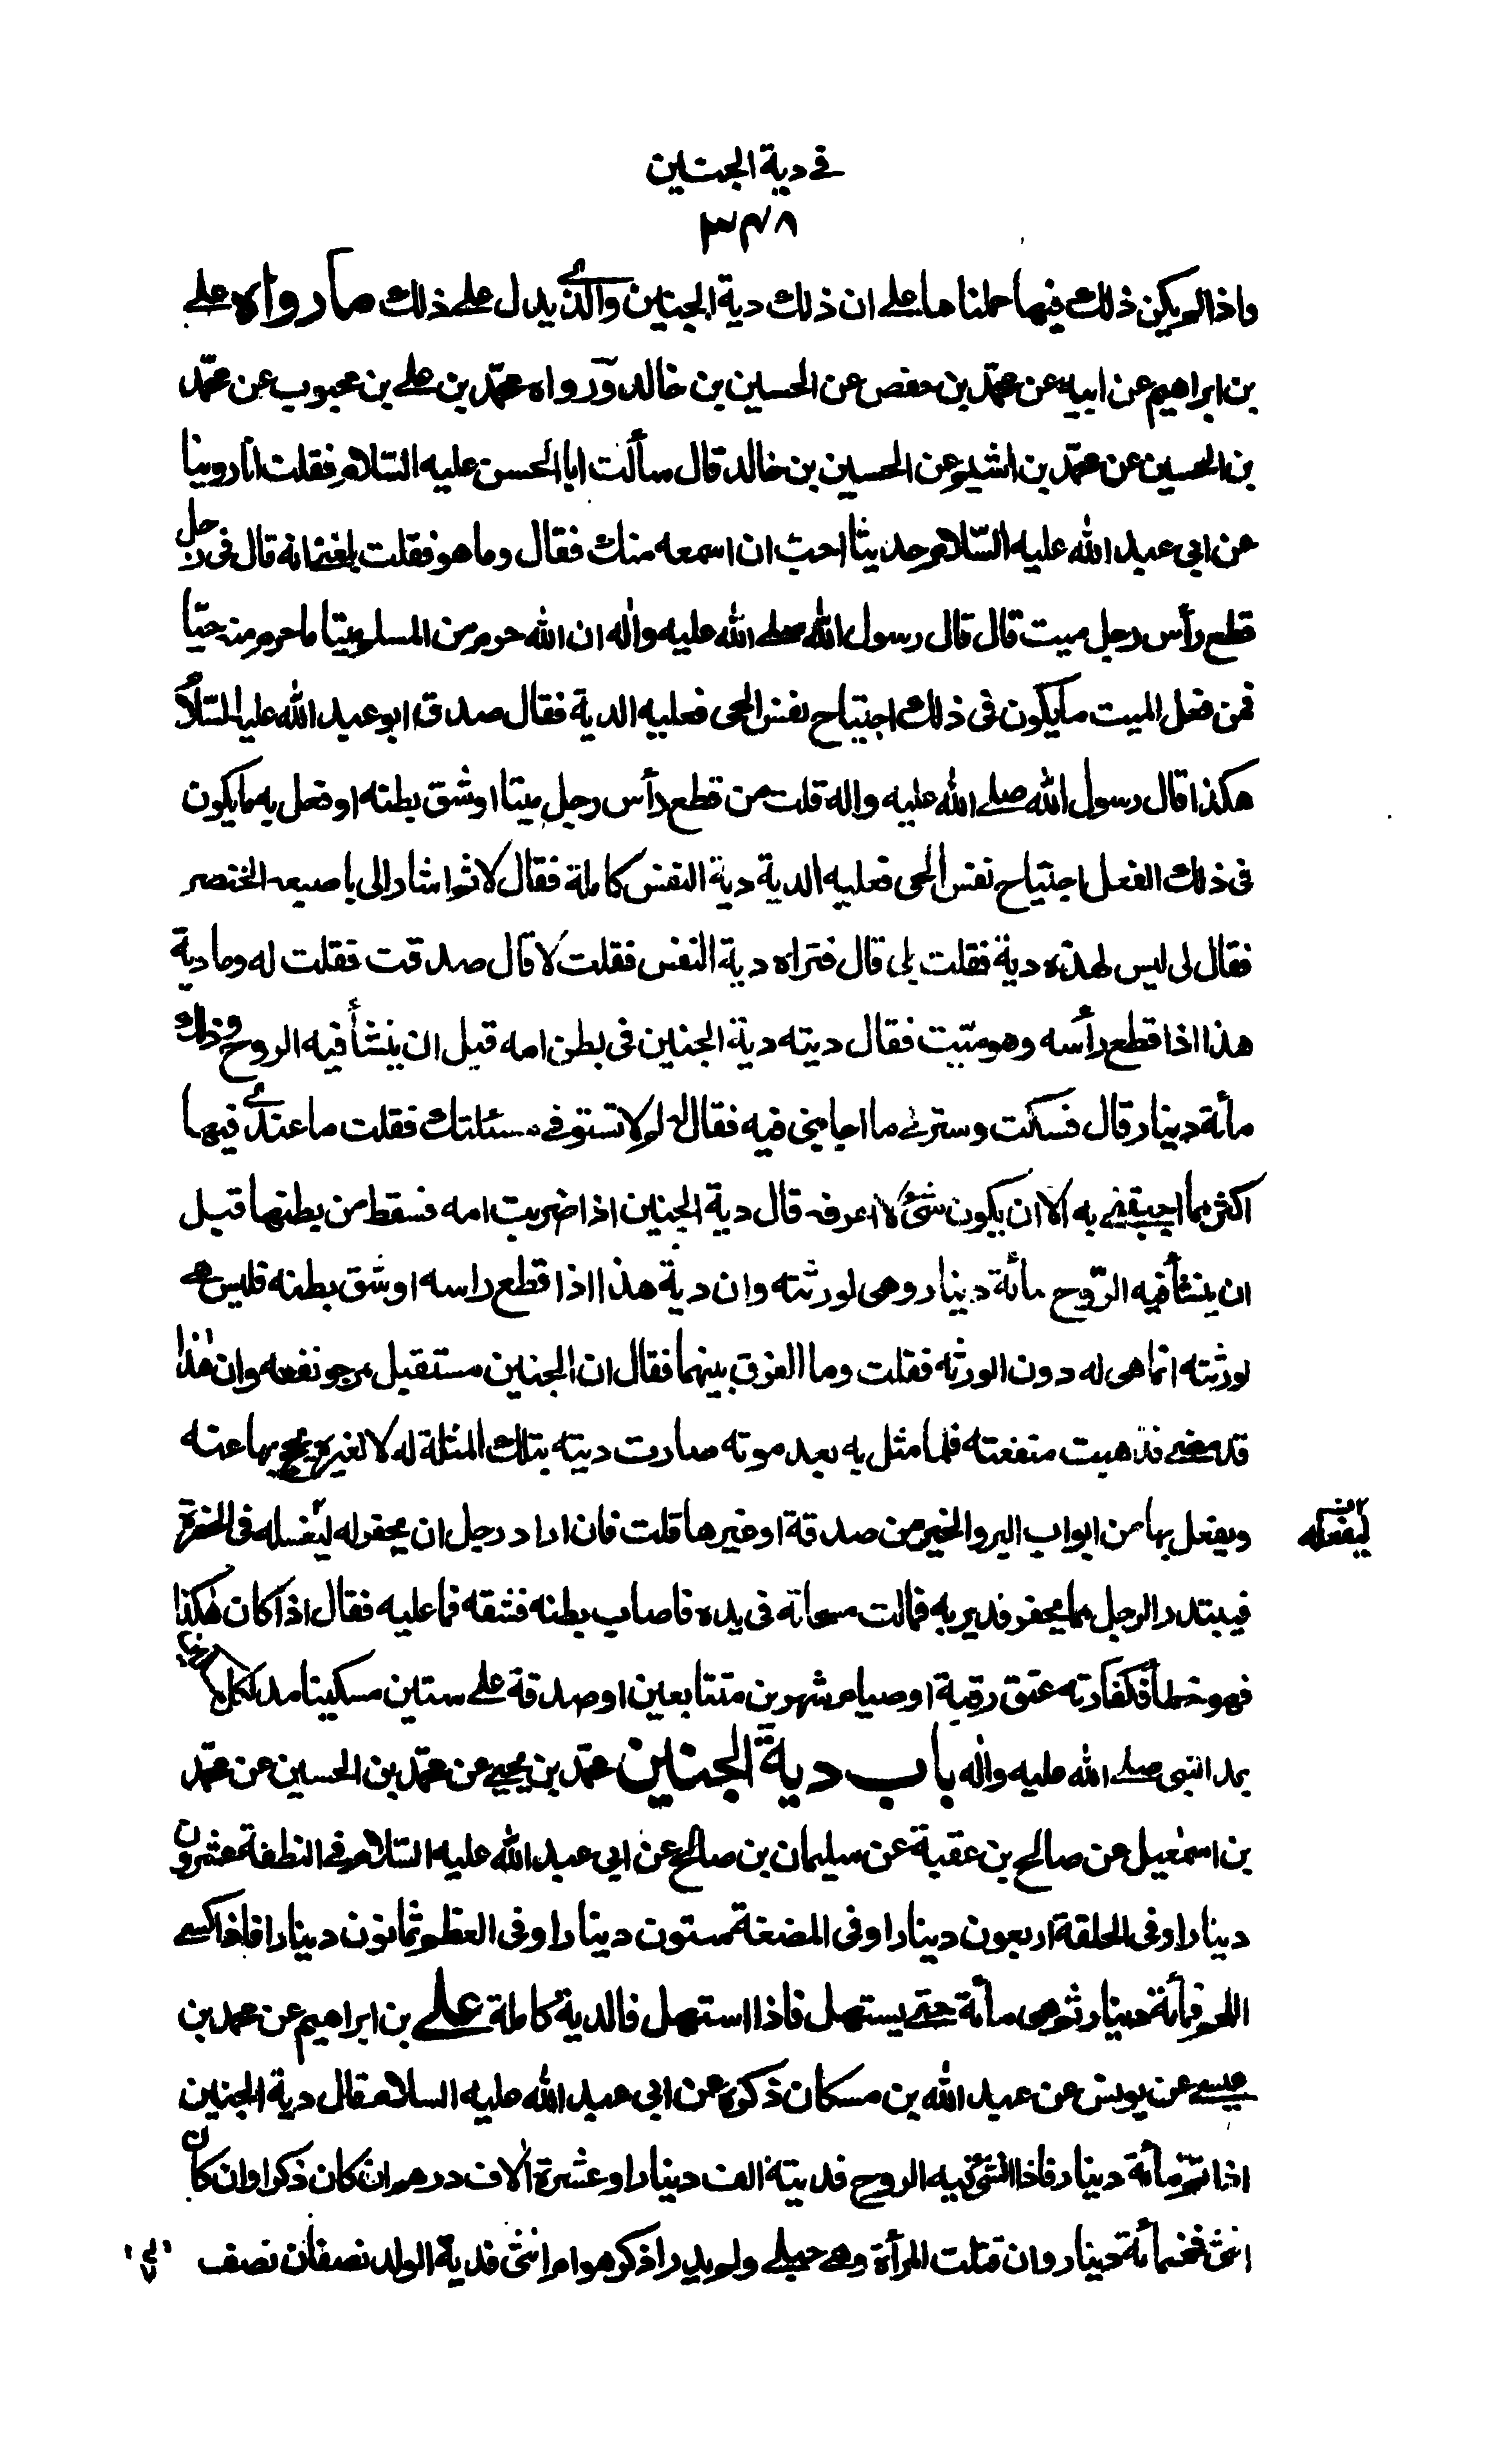 في دية الجنين
٣٤٨
واذا لم يكن ذلك فيها حملناها على ان ذلك دية الجنين والذي يدل على ذلك ما رواه علي
بن ابراهيم عن ابيه عن محمد بن حفص عن الحسين بن خالد ورواه محمد بن علي بن محبوب عن محمد
بن الحسين عن محمد بن اشيم عن الحسين بن خالد قال سألت ابا الحسن عليه السلام فقلت انا روينا
عن ابي عبد الله عليه السلام حديثا احب ان اسمعه منك فقال وما هو فقلت بلغني انه قال في رجل
قطع رأس رجل ميت قال قال رسول الله صلى الله عليه واله ان الله حرم من المسلم ميتا ما حرم منه حيا
فمن فعل الميت ما يكون في ذلك اجتياح نفس الحي فعليه الدية فقال صدق ابو عبد الله عليه السلام
هكذا قال رسول الله صلى الله عليه واله قلت من قطع رأس رجل ميتا او شق بطنه او فعل به ما يكون
في ذلك الفعل اجتياح نفس الحي فعليه الدية دية النفس كاملة فقال لا ثم اشار الى باصبعه الخنصر
فقال لي ليس لهذه دية فقلت بلى قال فتراه دية النفس فقلت لا قال صدقت فقلت له وما دية
هذا اذا قطع رأسه وهو ميت فقال ديته دية الجنين في بطن امه قبل ان ينشأ فيه الروح وذلك
مأئة دينار قال فسكت وسترني ما اجابني فيه فقال لم لا تستوفي مسئلتك فقلت ما عندي فيها
اكثر مما اجبتني به الا ان يكون شئ لا اعرفه قال دية الجنين اذا ضربت امه فسقط من بطنها قبل
ان ينشأ فيه الروح مائة دينار وهي لورثته وان دية هذا اذا قطع راسه او شق بطنه فليس هي
لورثته انما هي له دون الورثة فقلت وما الفرق بينهما فقال ان الجنين مستقبل مرجو نفعه وان هذا
قد مضى فذهبت منفعته فلما مثل به بعد موته صارت ديته بتلك المثلة له لا لغيره يحج بها عنه
ويفعل بها من ابواب البر والخير من صدقة او غيرها قلت فان اراد رجل ان يحفر له ليغسله في الحفرة
فيبتدر الرجل مما يحفر فدير به فمالت مسحاته في يده فاصاب بطنه فشقه فما عليه فقال اذا كان هكذا
فهو خطأ فكفارته عتق رقبة او صيام شهرين متتابعين او صدقة على ستين مسكينا مد لكل
بمد النبي صلى الله عليه واله باب دية الجنين محمد بن يحيى عن محمد بن الحسين عن محمد
بن اسمعيل عن صالح بن عقبة عن سليمان بن صالح عن ابي عبد الله عليه السلام في النطفة عشرون
دينارا وفي العلقة اربعون دينارا وفي المضغة ستون دينارا وفي العظم ثمانون دينارا فاذا كسى
اللحم فمأئة دينار ثم هي مأئة حتى يستهل فاذا استهل فالدية كاملة علي بن ابراهيم عن محمد بن
عيسى عن يونس عن عبد الله بن مسكان ذكره عن ابي عبد الله عليه السلام قال دية الجنين
اذا تم مأئة دينار فاذا انشئ فيه الروح فديته الف دينار او عشرة الاف درهم ان كان ذكرا وان كان
انثى فخمسمأئة دينار وان قتلت المرأة وهي حبلى ولم يدر اذكر هو ام انثى فدية الولد نصفان نصف